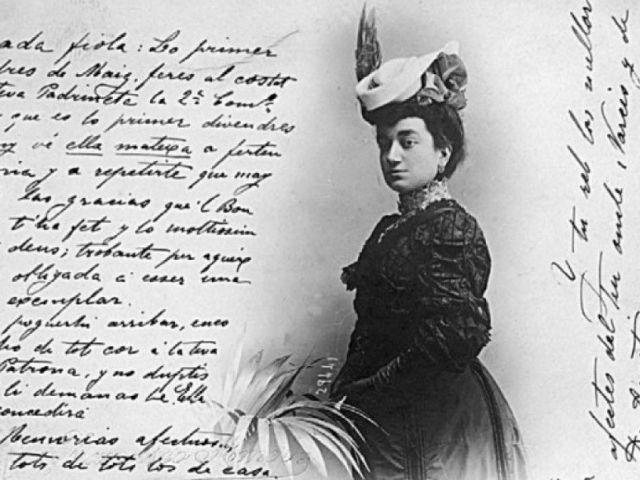 ada fiola: Lo primer
res de Maig, feres al costat
eva Padrineta la 2ª Com.ó
que es lo primer divendres
vé ella mateixa a ferten
ria y a repetirte que may
las gracias que'l Bon
t'ha fet y lo moltissim
deus; trobante per aqueix
obligada á coser una
exemplar.
poguerhi arribar, enco
de tot cor á la teva
Patrona, y no duptis
li demanas be. Ella
concedirá
Memorias afectuo
tots de tots los de casa.
Y tu reb los mellor
afectes del teu oncle, Narcis y de
11162